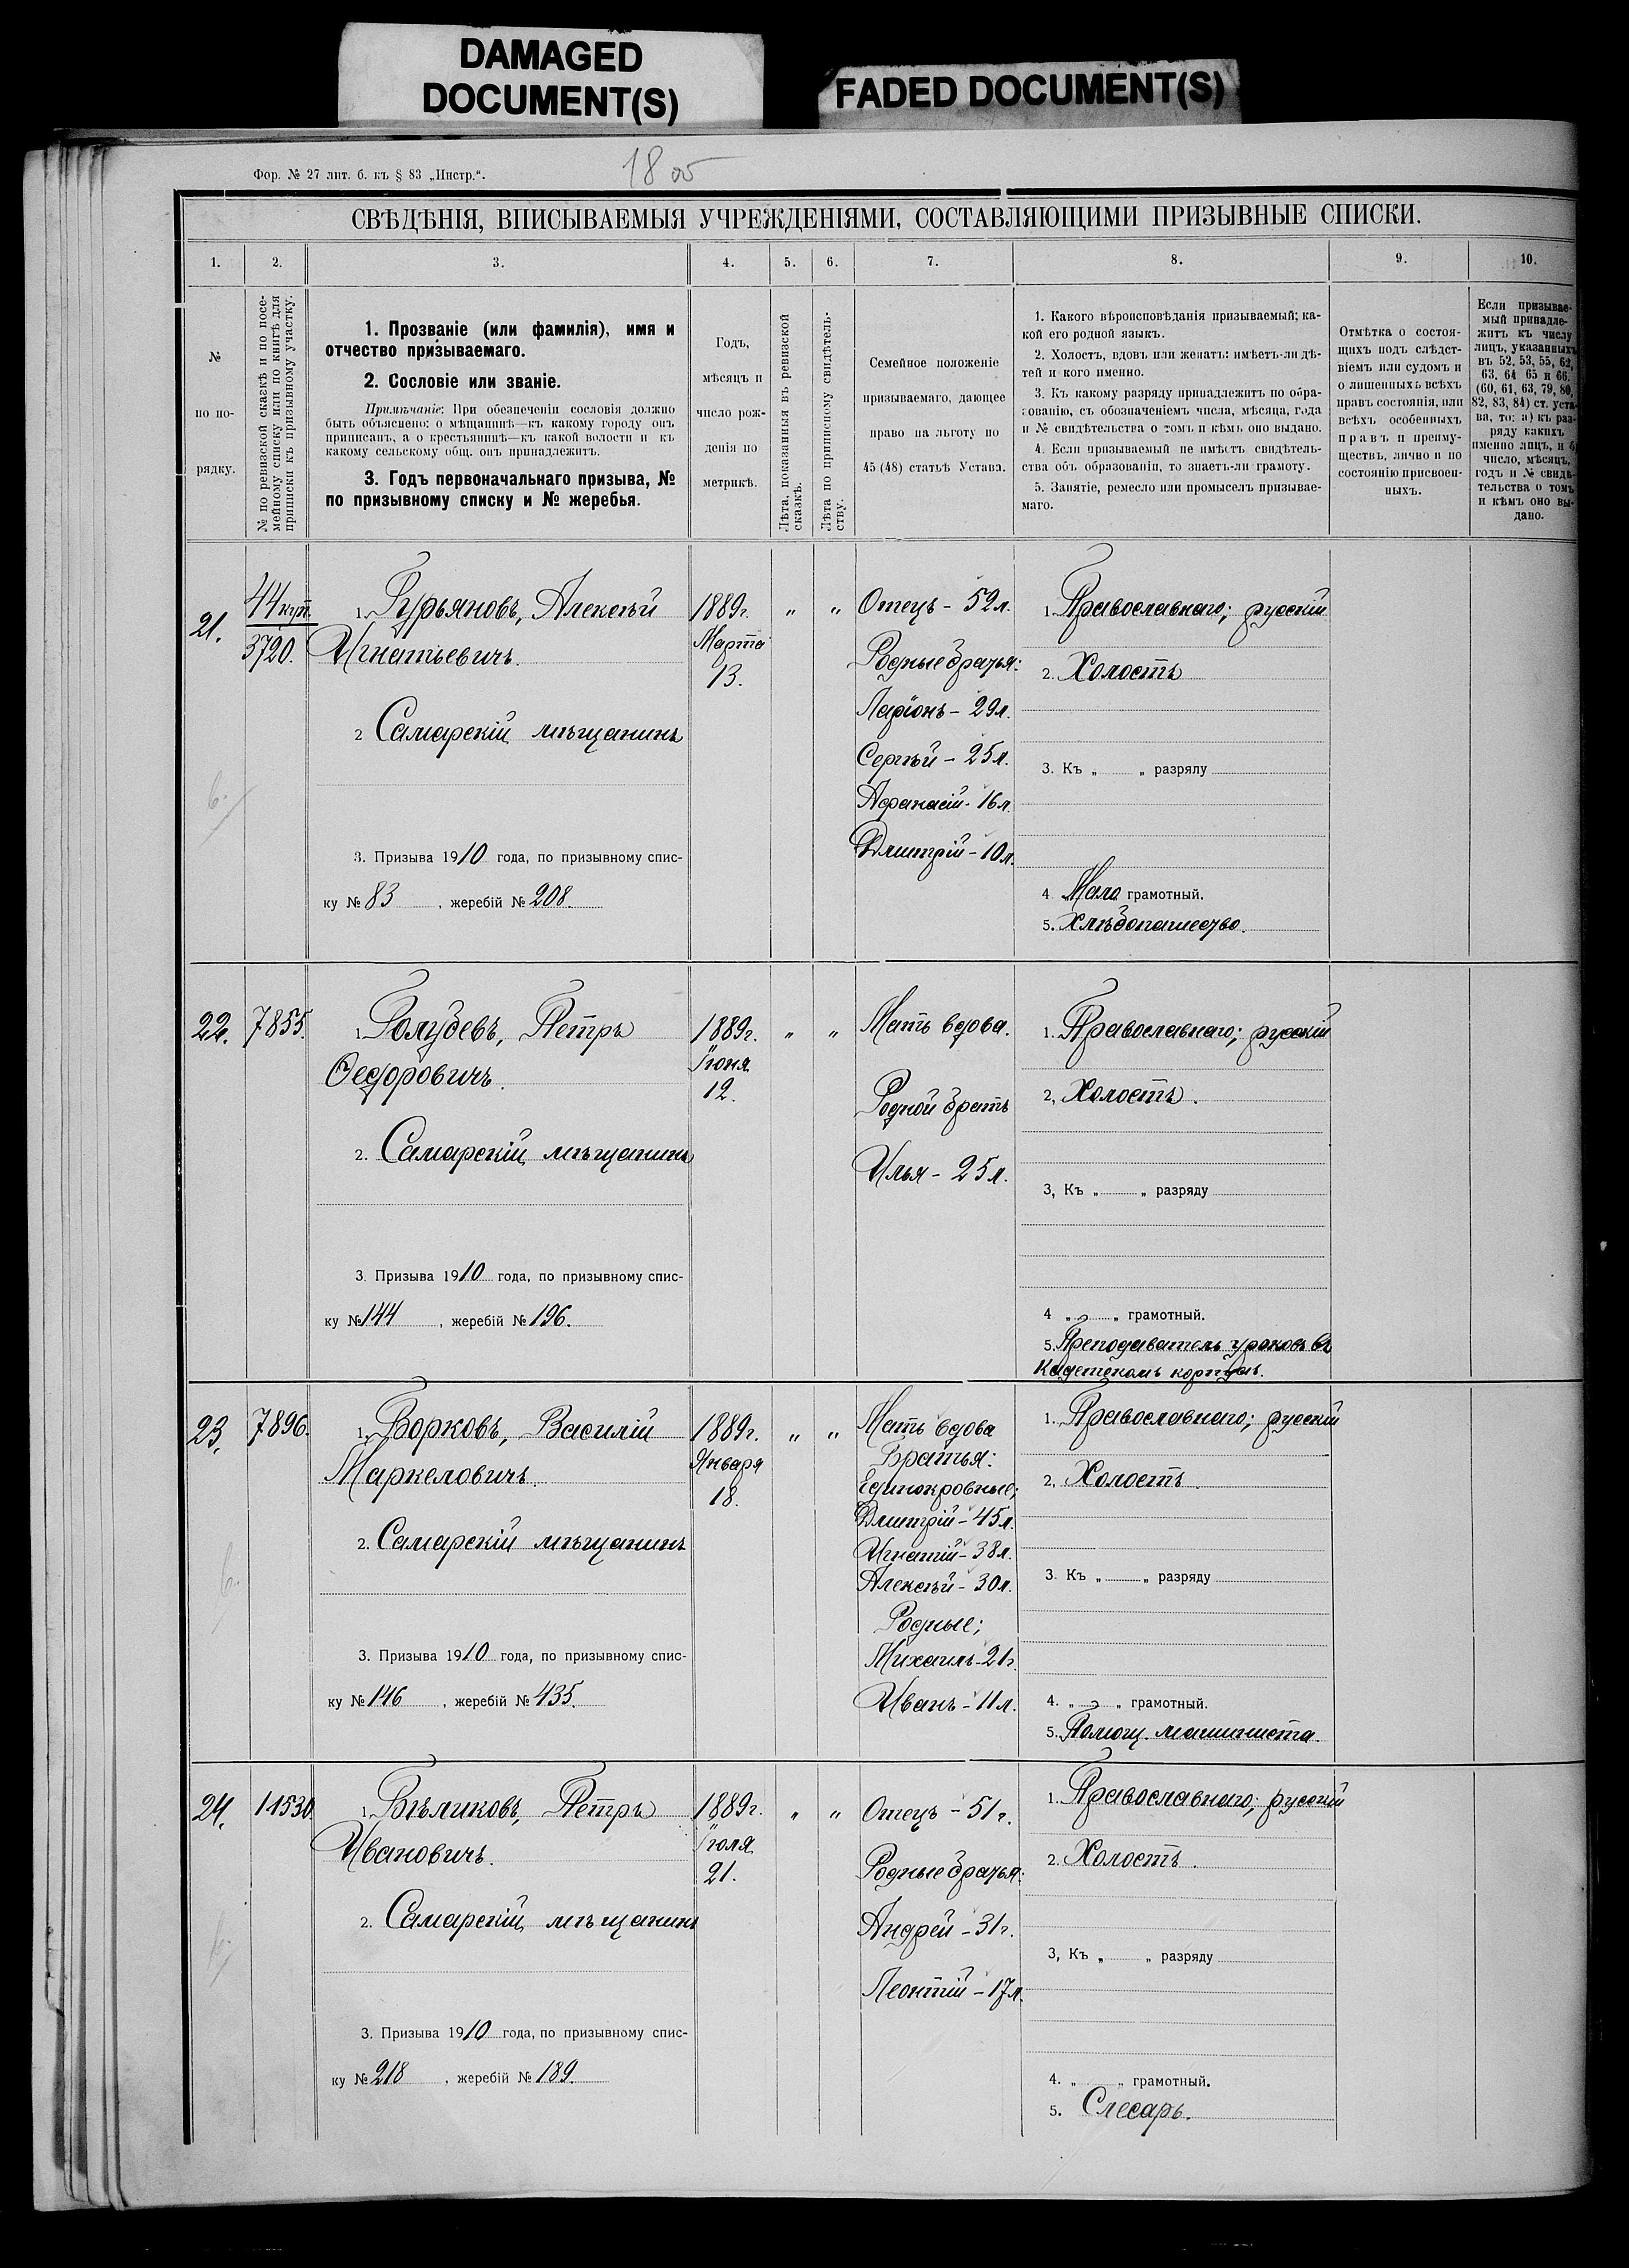 DAMAGED
DOCUMENT(S)
FADED DOCUMENT(S)
Фор. № 27 лит. б. къ § 83 „Инстр.“.
СВѢДѢНІЯ, ВПИСЫВАЕМЫЯ УЧРЕЖДЕНІЯМИ, СОСТАВЛЯЮЩИМИ ПРИЗЫВНЫЕ СПИСКИ.
1. 2. 3. 4. 5. 6. 7. 8. 9. 10.
№
по по-
рядку.
№ по ревизской сказкѣ и по посе-
мейному списку или по книгѣ для
приписки къ призывному участку.
1. Прозваніе (или фамилія), имя и
отчество призываемаго.
2. Сословіе или званіе.
Примѣчаніе: При обезпеченіи сословія должно
быть объяснено: о мѣщанинѣ—къ какому городу онъ
приписанъ, а о крестьянинѣ—къ какой волости и къ
какому сельскому общ. онъ принадлежитъ.
3. Годъ первоначальнаго призыва, №
по призывному списку и № жеребья.
Годъ,
мѣсяцъ и
число рож-
денія по
метрикѣ.
Лѣта, показанныя въ ревизской
сказкѣ.
Лѣта по приписному свидѣтель-
ству.
Семейное положеніе
призываемаго, дающее
право на льготу по
45 (48) статьѣ Устава.
1. Какого вѣроисповѣданія призываемый; ка-
кой его родной языкъ.
2. Холостъ, вдовъ или женатъ: имѣетъ-ли дѣ-
тей и кого именно.
3. Къ какому разряду принадлежитъ по обра-
зованію, съ обозначеніемъ числа, мѣсяца, года
и № свидѣтельства о томъ и кѣмъ оно выдано.
4. Если призываемый не имѣетъ свидѣтель-
ства объ образованіи, то знаетъ-ли грамоту.
5. Занятіе, ремесло или промыселъ призывае-
маго.
Отмѣтка о состоя-
щихъ подъ слѣдст-
віемъ или судомъ и
о лишенныхъ всѣхъ
правъ состоянія, или
всѣхъ особенныхъ
правъ и преиму-
ществъ, лично и по
состоянію присвоен-
ныхъ.
Если призывае-
мый принадле-
житъ къ числу
лицъ, указанныхъ
въ 52, 53, 55, 62,
63, 64 65 и 66.
(60, 61, 63, 79, 80,
82, 83, 84) ст. уста-
ва, то: а) къ раз-
ряду какихъ
именно лицъ, и б)
число, мѣсяцъ,
годъ и № свидѣ-
тельства о томъ
и кѣмъ оно вы-
дано.
21.
44 куп.
3720.
1. Гурьяновъ, Алексѣй
Игнатьевичъ.
2 Самарскій мѣщанинъ
3. Призыва 1910 года, по призывному спис-
ку № 83, жеребій № 208.
1889г.
Марта
13.
„ „
Отецъ - 52 л.
Родные братья:
Ларіонъ - 29 л.
Сергѣй - 25 л.
Афанасій - 16 л.
Дмитрій - 10 л.
1. Православнаго; русскій
2. Холостъ
3. Къ „ „ разряду
4 Мало грамотный.
5. Хлѣбопашество.
22. 7855.
1. Голубевъ, Петръ
Ѳедоровичъ.
2. Самарскій мѣщанинъ
3. Призыва 1910 года, по призывному спис-
ку № 144, жеребій № 196.
1889г.
Іюня
12.
„ „
Мать вдова.
Родной братъ
Илья - 25 л.
1. Православнаго; русскій
2, Холостъ.
3, Къ „ „ разряду
4 „ „ грамотный.
5. Преподаватель уроковъ въ
Кадетскомъ корпусѣ.
23. 7896.
1. Борковъ, Василій
Маркеловичъ.
2. Самарскій мѣщанинъ
3. Призыва 1910 года, по призывному спис-
ку № 146, жеребій № 435.
1889г.
Января
18.
„ „
Мать вдова
Братья:
Единокровные;
Дмитрій - 45 л.
Игнатій - 38 л.
Алексѣй - 30 л.
Родные;
Михаилъ - 21 г.
Иванъ - 11 л.
1. Православнаго; русскій
2, Холостъ.
3. Къ „ „ разряду
4. „ „ грамотный.
5. Помощ. машиниста.
24. 11530
1. Бѣликовъ, Петръ
Ивановичъ.
2. Самарскій мѣщанинъ
3. Призыва 1910 года, по призывному спис-
ку № 218, жеребій № 189.
1889г.
Іюля
21.
„ „
Отецъ - 51 г.
Родные братья:
Андрей - 31 г.
Леонтій - 17 л.
1. Православнаго; русскій
2. Холостъ.
3, Къ „ „ разряду
4. „ „ грамотный.
5. Слесарь.